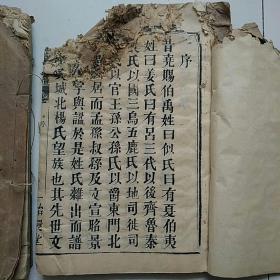 序
昔堯賜伯禹姓曰姒氏曰有夏伯夷
姓曰姜氏曰有呂三代以後齊魯秦
氏以國三烏五鹿氏以地司徒司
氏以官王孫公孫氏以爵東門北
居而孟孫叔孫及文宣昭景
字與謚於是姓氏雜出而譜
城北楊氏望族也其先世文
堂